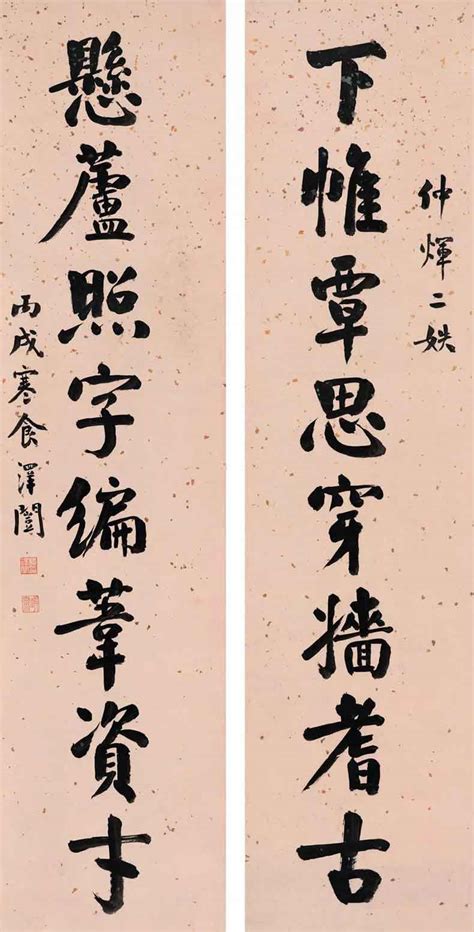 仲煇二妷
下帷覃思穿牆耆古
懸蘆照字編葦資才
丙戌寒食澤闓